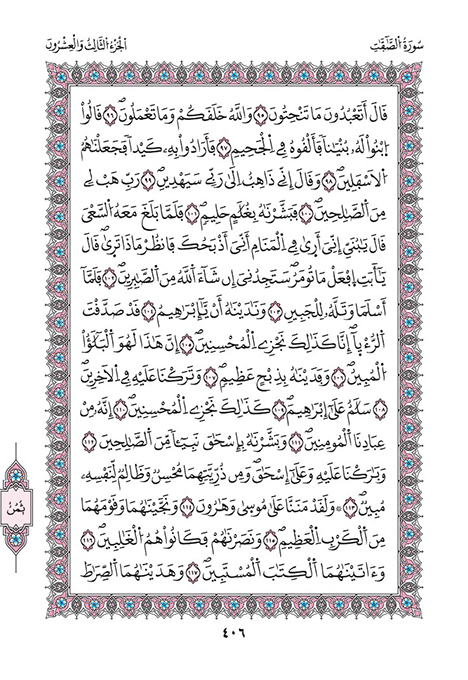 سُورَةُ الصَّٰٓفَّٰتِ
الْجُزْءُ الثَّالِثُ وَالْعِشْرُونَ
قَالَ أَتَعْبُدُونَ مَا تَنْحِتُونَ ٩٥ وَاللَّهُ خَلَقَكُمْ وَمَا تَعْمَلُونَ ٩٦ قَالُوا۟
اُبْنُوا۟ لَهُۥ بُنْيَٰنًا فَأَلْقُوهُ فِے اِلْجَحِيمِ ٩٧ فَأَرَادُوا۟ بِهِۦ كَيْدًا فَجَعَلْنَٰهُمُ
اُلَاسْفَلِينَ ٩٨ وَقَالَ إِنِّے ذَاهِبٌ اِلَىٰ رَبِّے سَيَهْدِينِ ٩٩ رَبِّ هَبْ لِے
مِنَ اَلصَّٰلِحِينَ ١٠٠ فَبَشَّرْنَٰهُ بِغُلَٰمٍ حَلِيمٍ ١٠١ فَلَمَّا بَلَغَ مَعَهُ اُلسَّعْيَ
قَالَ يَٰبُنَيِّ إِنِّيَ أَر۪ىٰ فِے اِلْمَنَامِ أَنِّيَ أَذْبَحُكَ فَانظُرْ مَاذَا تَر۪ىٰ قَالَ
يَٰٓأَبَتِ اِفْعَلْ مَا تُومَرُ سَتَجِدُنِيَ إِن شَآءَ اَللَّهُ مِنَ اَلصَّٰبِرِينَ ١٠٢ فَلَمَّآ
أَسْلَمَا وَتَلَّهُۥ لِلْجَبِينِ ١٠٣ وَنَٰدَيْنَٰهُ أَنْ يَّٰٓإِبْرَٰهِيمُ ١٠٤ قَدْ صَدَّقْتَ
اَلرُّءْي۪آ إِنَّا كَذَٰلِكَ نَجْزِے اِلْمُحْسِنِينَ ١٠٥ إِنَّ هَٰذَا لَهُوَ اَلْبَلَٰٓؤُا۟
اُلْمُبِينُ ١٠٦ وَفَدَيْنَٰهُ بِذِبْحٍ عَظِيمٍ ١٠٧ وَتَرَكْنَا عَلَيْهِ فِے اِلَاخِرِينَ
١٠٨ سَلَٰمٌ عَلَىٰٓ إِبْرَٰهِيمَ ١٠٩ كَذَٰلِكَ نَجْزِے اِلْمُحْسِنِينَ ١١٠ إِنَّهُۥ مِنْ
عِبَادِنَا اَلْمُومِنِينَ ١١١ وَبَشَّرْنَٰهُ بِإِسْحَٰقَ نَبِيٓـًٔا مِّنَ اَلصَّٰلِحِينَ ١١٢
وَبَٰرَكْنَا عَلَيْهِ وَعَلَىٰٓ إِسْحَٰقَ وَمِن ذُرِّيَّتِهِمَا مُحْسِنٌ وَظَالِمٌ لِّنَفْسِهِۦ
مُبِينٌ ١١٣ ۞ وَلَقَدْ مَنَنَّا عَلَىٰ مُوس۪ىٰ وَهَٰرُونَ ١١٤ وَنَجَّيْنَٰهُمَا وَقَوْمَهُمَا
مِنَ اَلْكَرْبِ اِلْعَظِيمِ ١١٥ وَنَصَرْنَٰهُمْ فَكَانُوا۟ هُمُ اُلْغَٰلِبِينَ ١١٦
وَءَاتَيْنَٰهُمَا اَلْكِتَٰبَ اَلْمُسْتَبِينَ ١١٧ وَهَدَيْنَٰهُمَا اَلصِّرَٰطَ
ثُمُنْ
٤٠٦